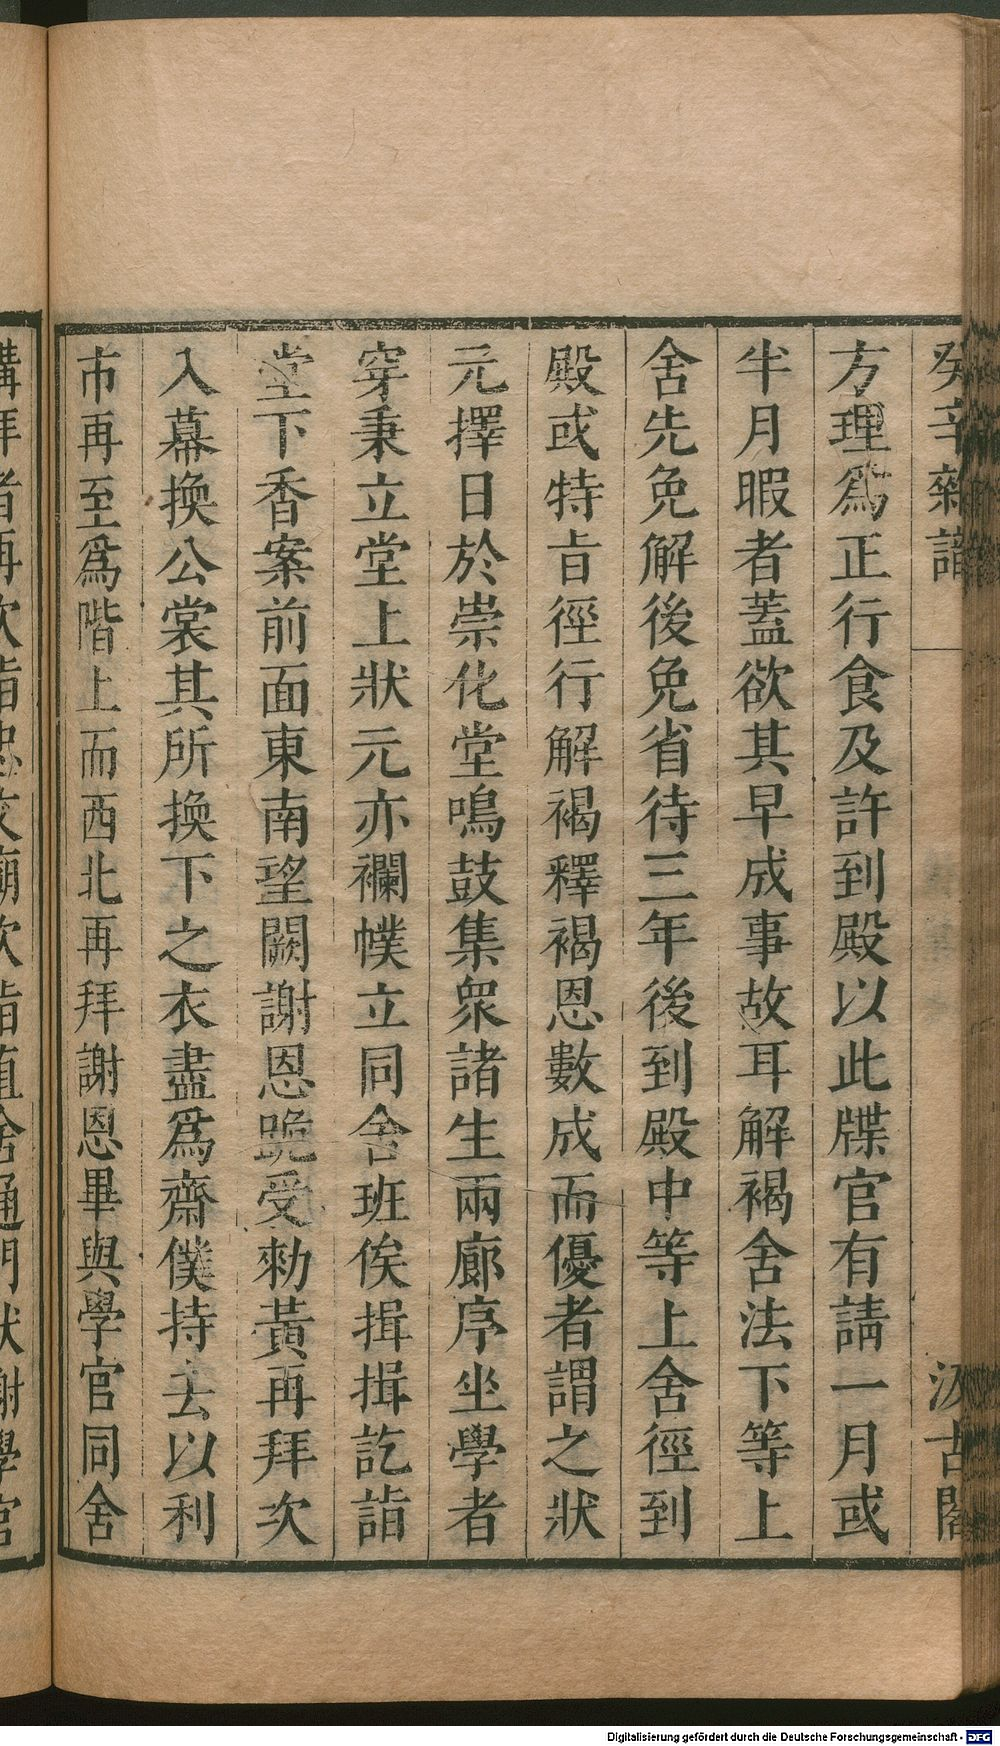 癸辛雜識
汲古閣
方理爲正行食及許到殿以此牒官有請一月或
半月暇者蓋欲其早成事故耳解褐舍法下等上
舍先免解後免省待三年後到殿中等上舍徑到
殿或特旨徑行解褐釋褐恩數成而優者謂之狀
元擇日於崇化堂鳴鼓集衆諸生兩廊序坐學者
穿秉立堂上狀元亦襴幞立同舍班俟揖揖訖詣
堂下香案前面東南望闕謝恩跪受勑黃再拜次
入幕換公裳其所換下之衣盡爲齋僕持去以利
市再至爲階上而西北再拜謝恩畢與學官同舍
講拜者再次詣忠文廟次詣直舍通門狀謝學官
Digitalisierung gefördert durch die Deutsche Forschungsgemeinschaft - DFG